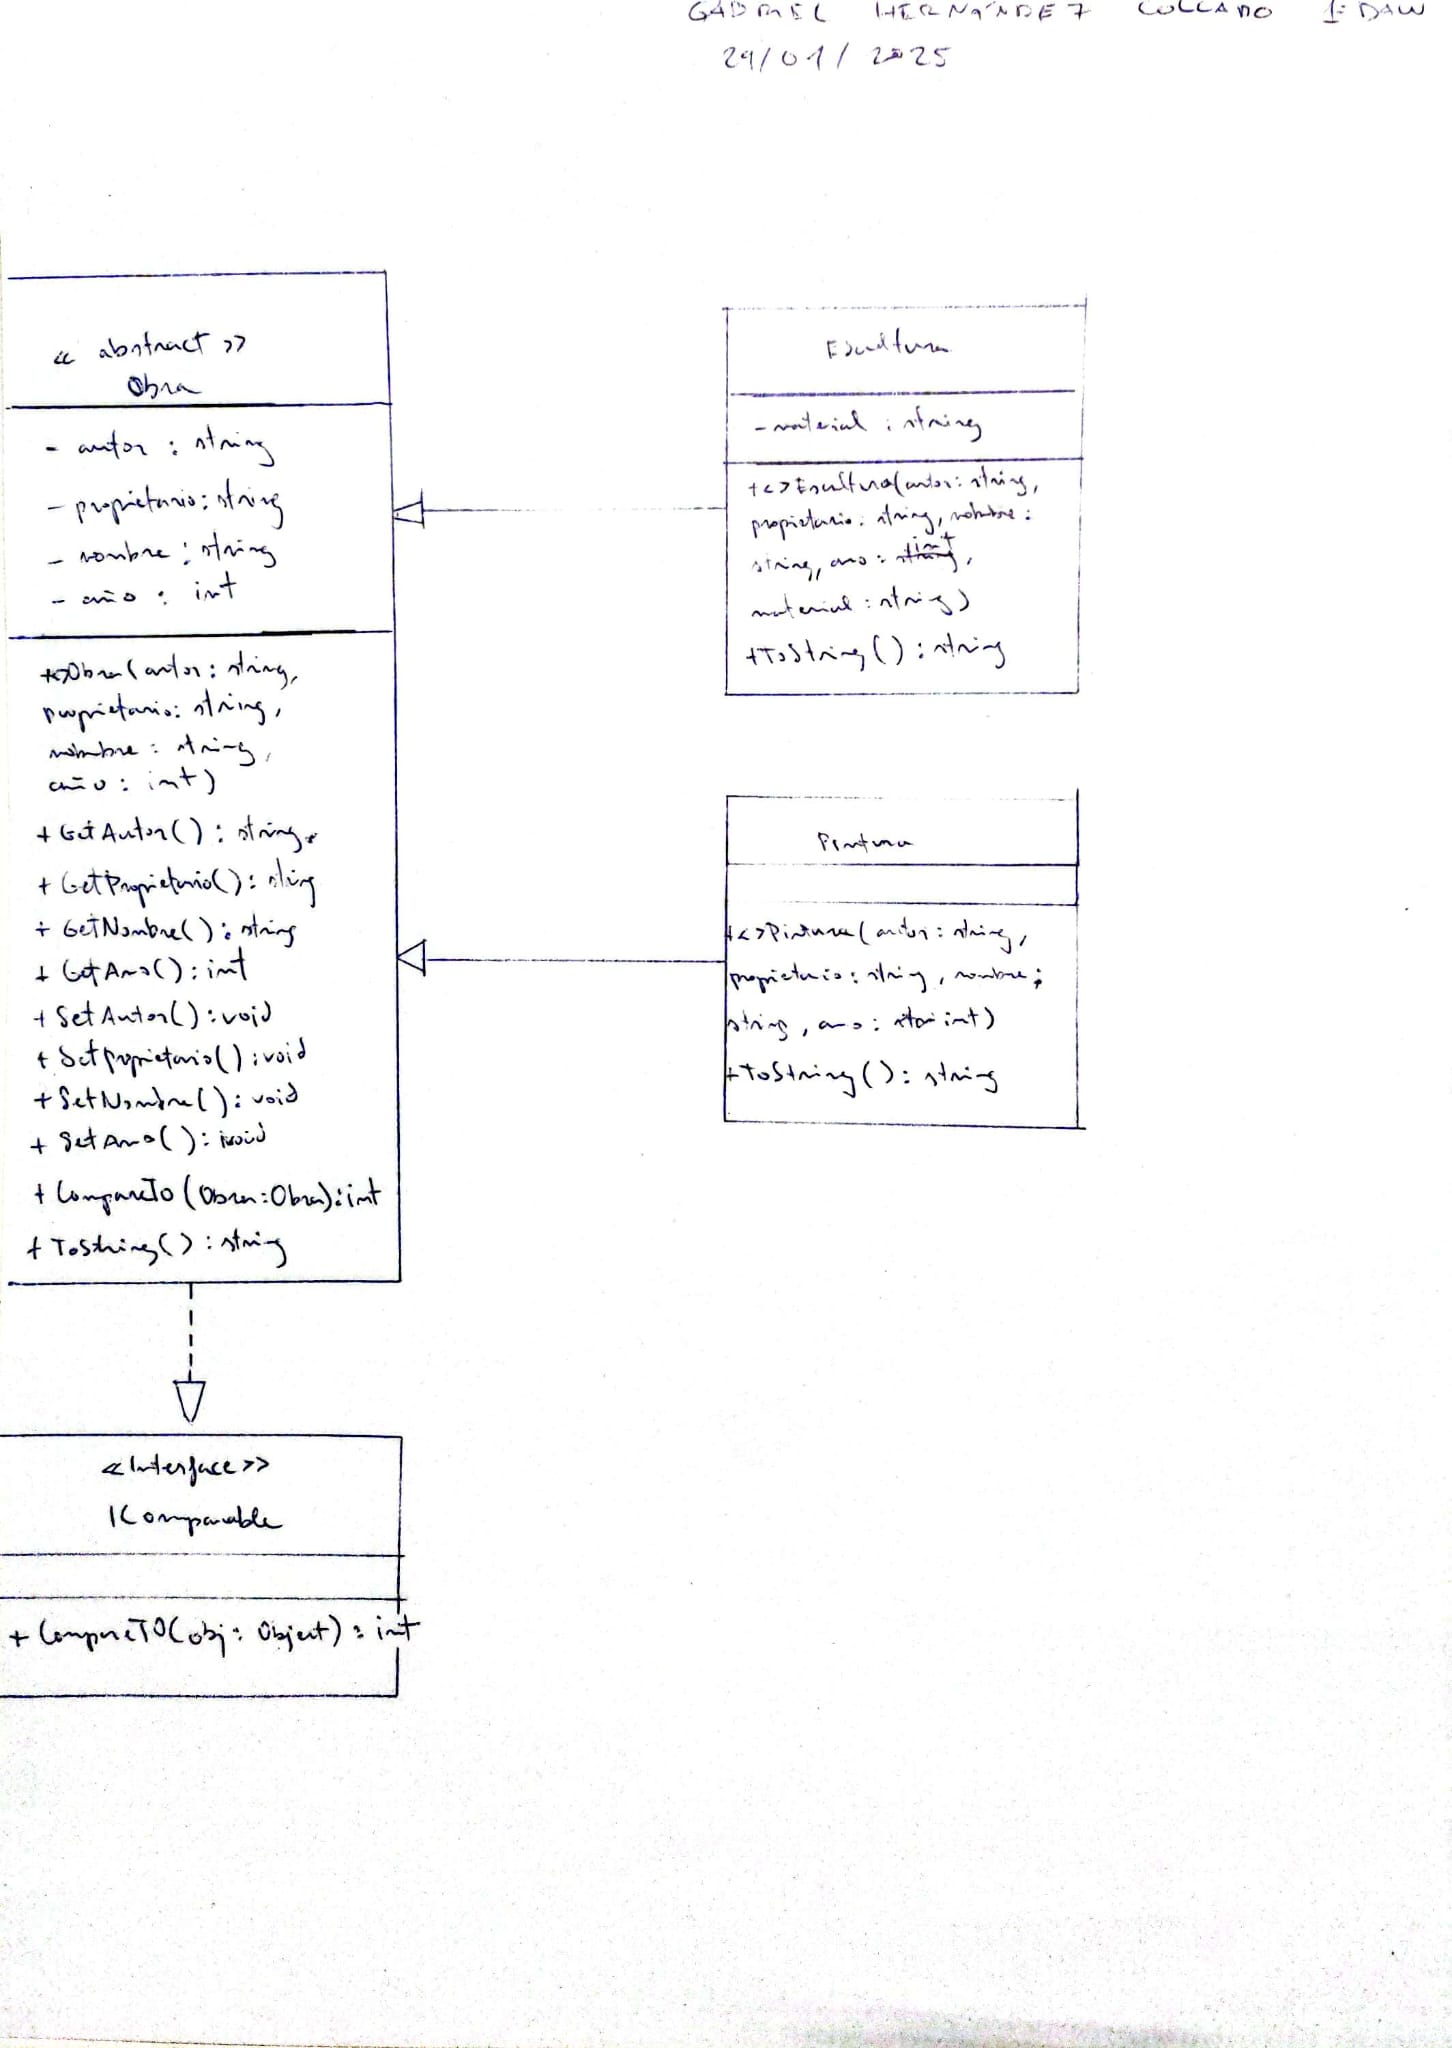 GABRIEL HERNÁNDEZ COLLADO 1º DAW
29/01/2025
<< abstract >>
Obra
- autor : string
- propietario : string
- nombre : string
- año : int
+<>Obra(autor : string,
propietario : string,
nombre : string,
año : int)
+ GetAutor() : string
+ GetPropietario() : string
+ GetNombre() : string
+ GetAno() : int
+ SetAutor() : void
+ SetPropietario() : void
+ SetNombre() : void
+ SetAno() : void
+ CompareTo(Obra:Obra):int
+ ToString() : string
<<Interface>>
IComparable
+ CompareTO(obj : Object) : int
Escultura
- material : string
+<>Escultura(autor : string,
propietario : string, nombre :
string, ano : int,
material : string)
+ToString() : string
Pintura
+<>Pintura(autor : string,
propietario : string, nombre :
string, ano : int)
+ToString() : string